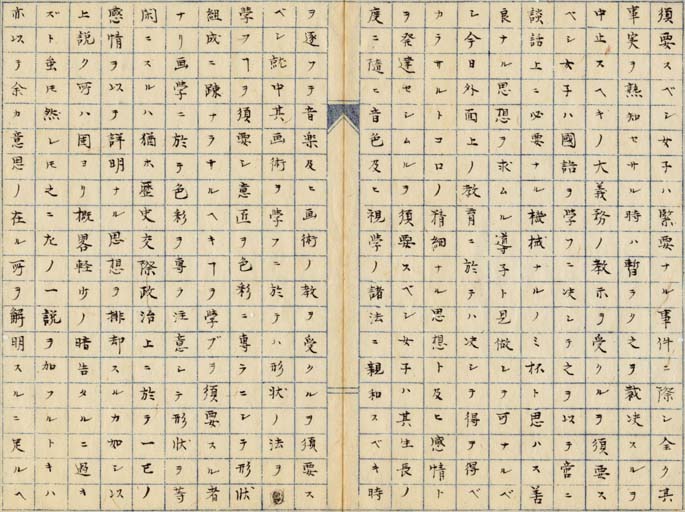 須要スベシ女子ハ緊要ナル事件ニ際シ全ク其
事実ヲ熟知セサル時ハ暫ラク之ヲ裁决スルヲ
中止スヘキノ大義務ノ教示ヲ受クルヲ須要ス
ベシ女子ハ國語ヲ学フニ决シテ之ヲ以テ啻ニ
談話上ニ必要ナル機械ナルノミ抔ト思ハス善
良ナル思想ヲ求ムル導子ト見做シテ可ナルベ
シ今日外面上ノ教育ニ於テハ决シテ得ヲ得ベ
カラサルトコロノ精細ナル思想ト及ヒ感情ト
ヲ発達セシムルヲ須要スベシ女子ハ其生長ノ
度ニ隨ニ音色及ヒ視学ノ諸法ニ親和スベキ時
ヲ逐フテ音楽及ヒ画術ノ教ヲ受クルヲ須要ス
ベシ就中其画術ヲ學フニ於テハ形状ノ法ヲ
學フヿヲ須要シ意匠ヲ色彩ニ專ラニシテ形状
組成ニ疎ナラサルヘキヿヲ學ブヲ須要スル者
ナリ画學ニ於テ色彩ヲ專ラ注意シテ形状ヲ等
閑ニスルハ猶ホ歴史交際政治上ニ於テ一已ノ
感情ヲ以テ詳明ナル思想ヲ排却スルカ如シ以
上説ク所ハ固ヨリ概畧軽少ノ暗告タルニ過キ
ズト虽モ然レモ之ニ左ノ一説ヲ加フルトキハ
亦以テ余カ意思ノ在ル所ヲ解明スルニ足ルヘ